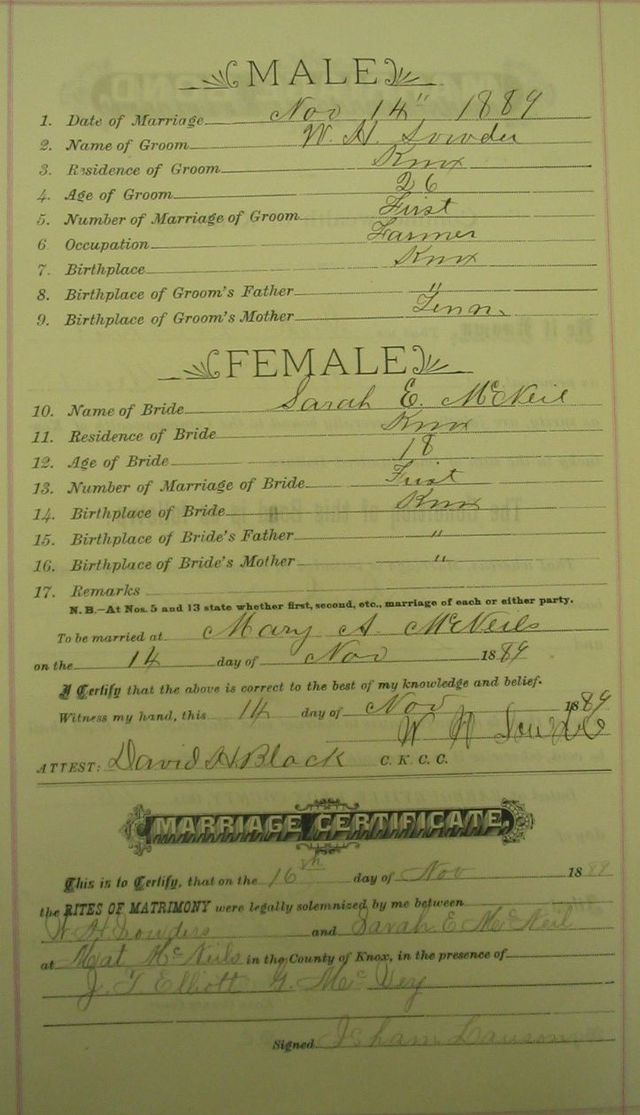 MALE
1. Date of Marriage Nov 14" 1889
2. Name of Groom W. H. Lowder
3. Residence of Groom Knox
4. Age of Groom 26
5. Number of Marriage of Groom First
6 Occupation Farmer
7. Birthplace Knox
8. Birthplace of Groom's Father "
9. Birthplace of Groom's Mother Tenn.
FEMALE
10. Name of Bride Sarah E. McNeil
11. Residence of Bride Knox
12. Age of Bride 18
13. Number of Marriage of Bride First
14. Birthplace of Bride Knox
15. Birthplace of Bride's Father "
16. Birthplace of Bride's Mother "
17. Remarks
N. B.—At Nos. 5 and 13 state whether first, second, etc., marriage of each or either party.
To be married at Mary A. McNeils
on the 14 day of Nov 1889
I Certify that the above is correct to the best of my knowledge and belief.
Witness my hand, this 14 day of Nov 1889
W H
ATTEST: David H Black C. K. C. C.
MARRIAGE CERTIFICATE.
This is to Certify, that on the 16th day of Nov 1889
the RITES OF MATRIMONY were legally solemnized by me between
W. H. Lowders and Sarah E McNeil
at Mat McNeils in the County of Knox, in the presence of
J. T Elliott G. McVey
Signed Isham Lawson